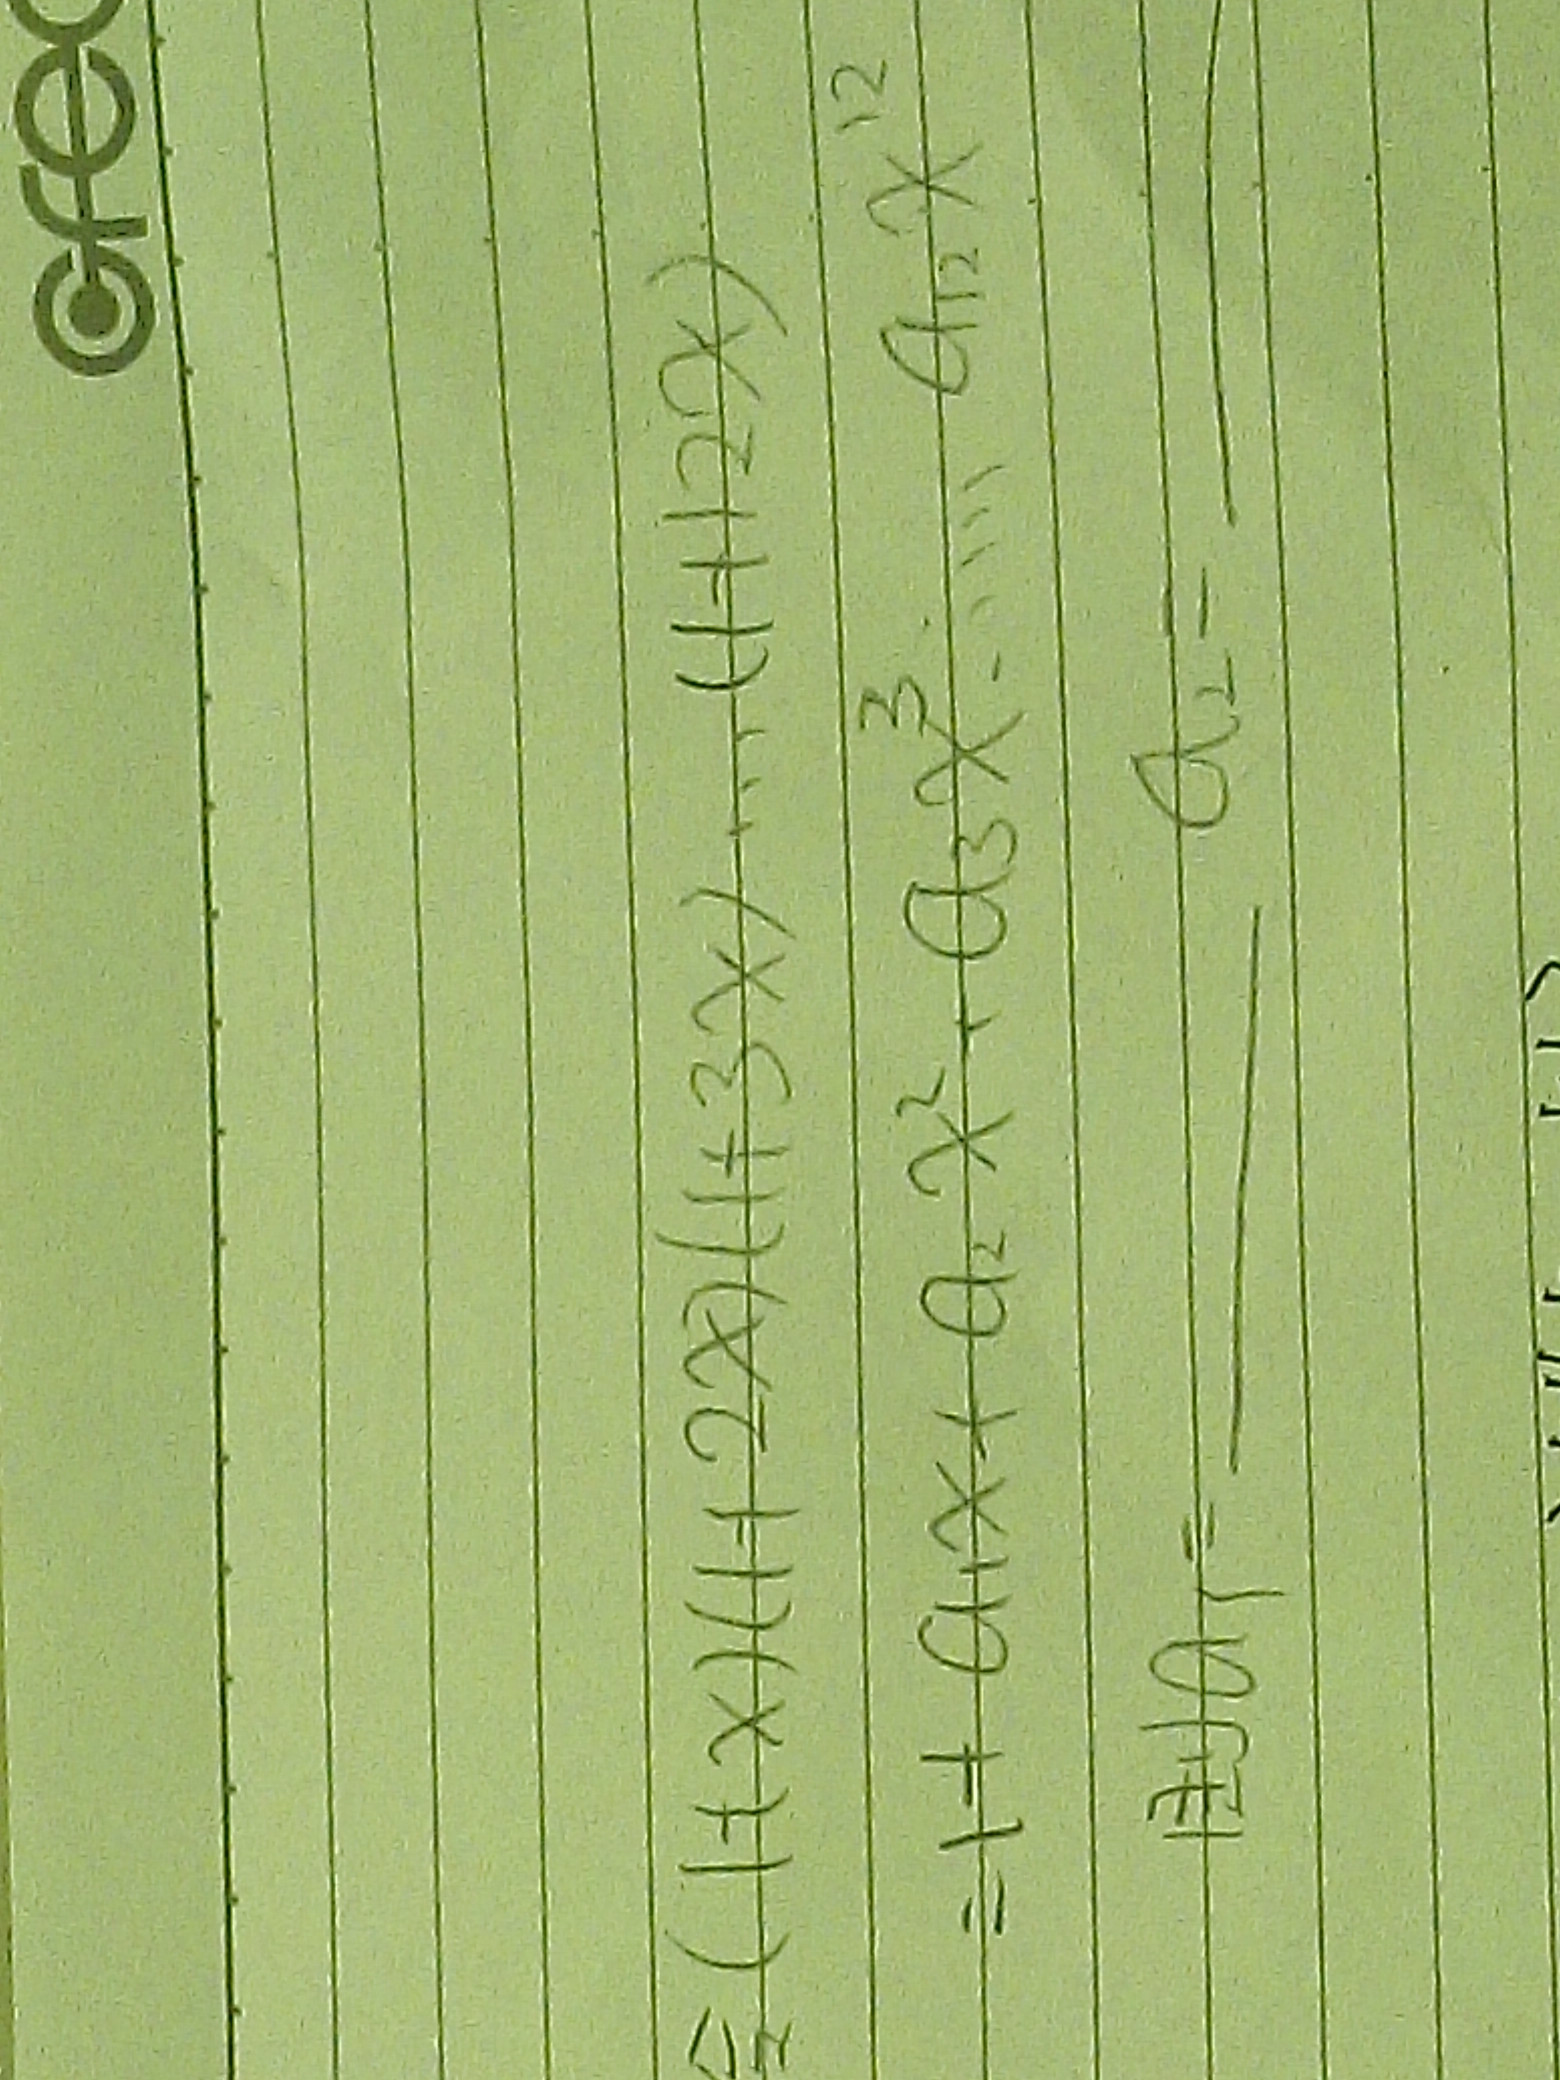 (1+x)(1+2x)(1+3x)......(1+12x)
=1+a₁x+a₂x²+a₃x³.......a₁₂x¹²
則a₁=______ a₂=______